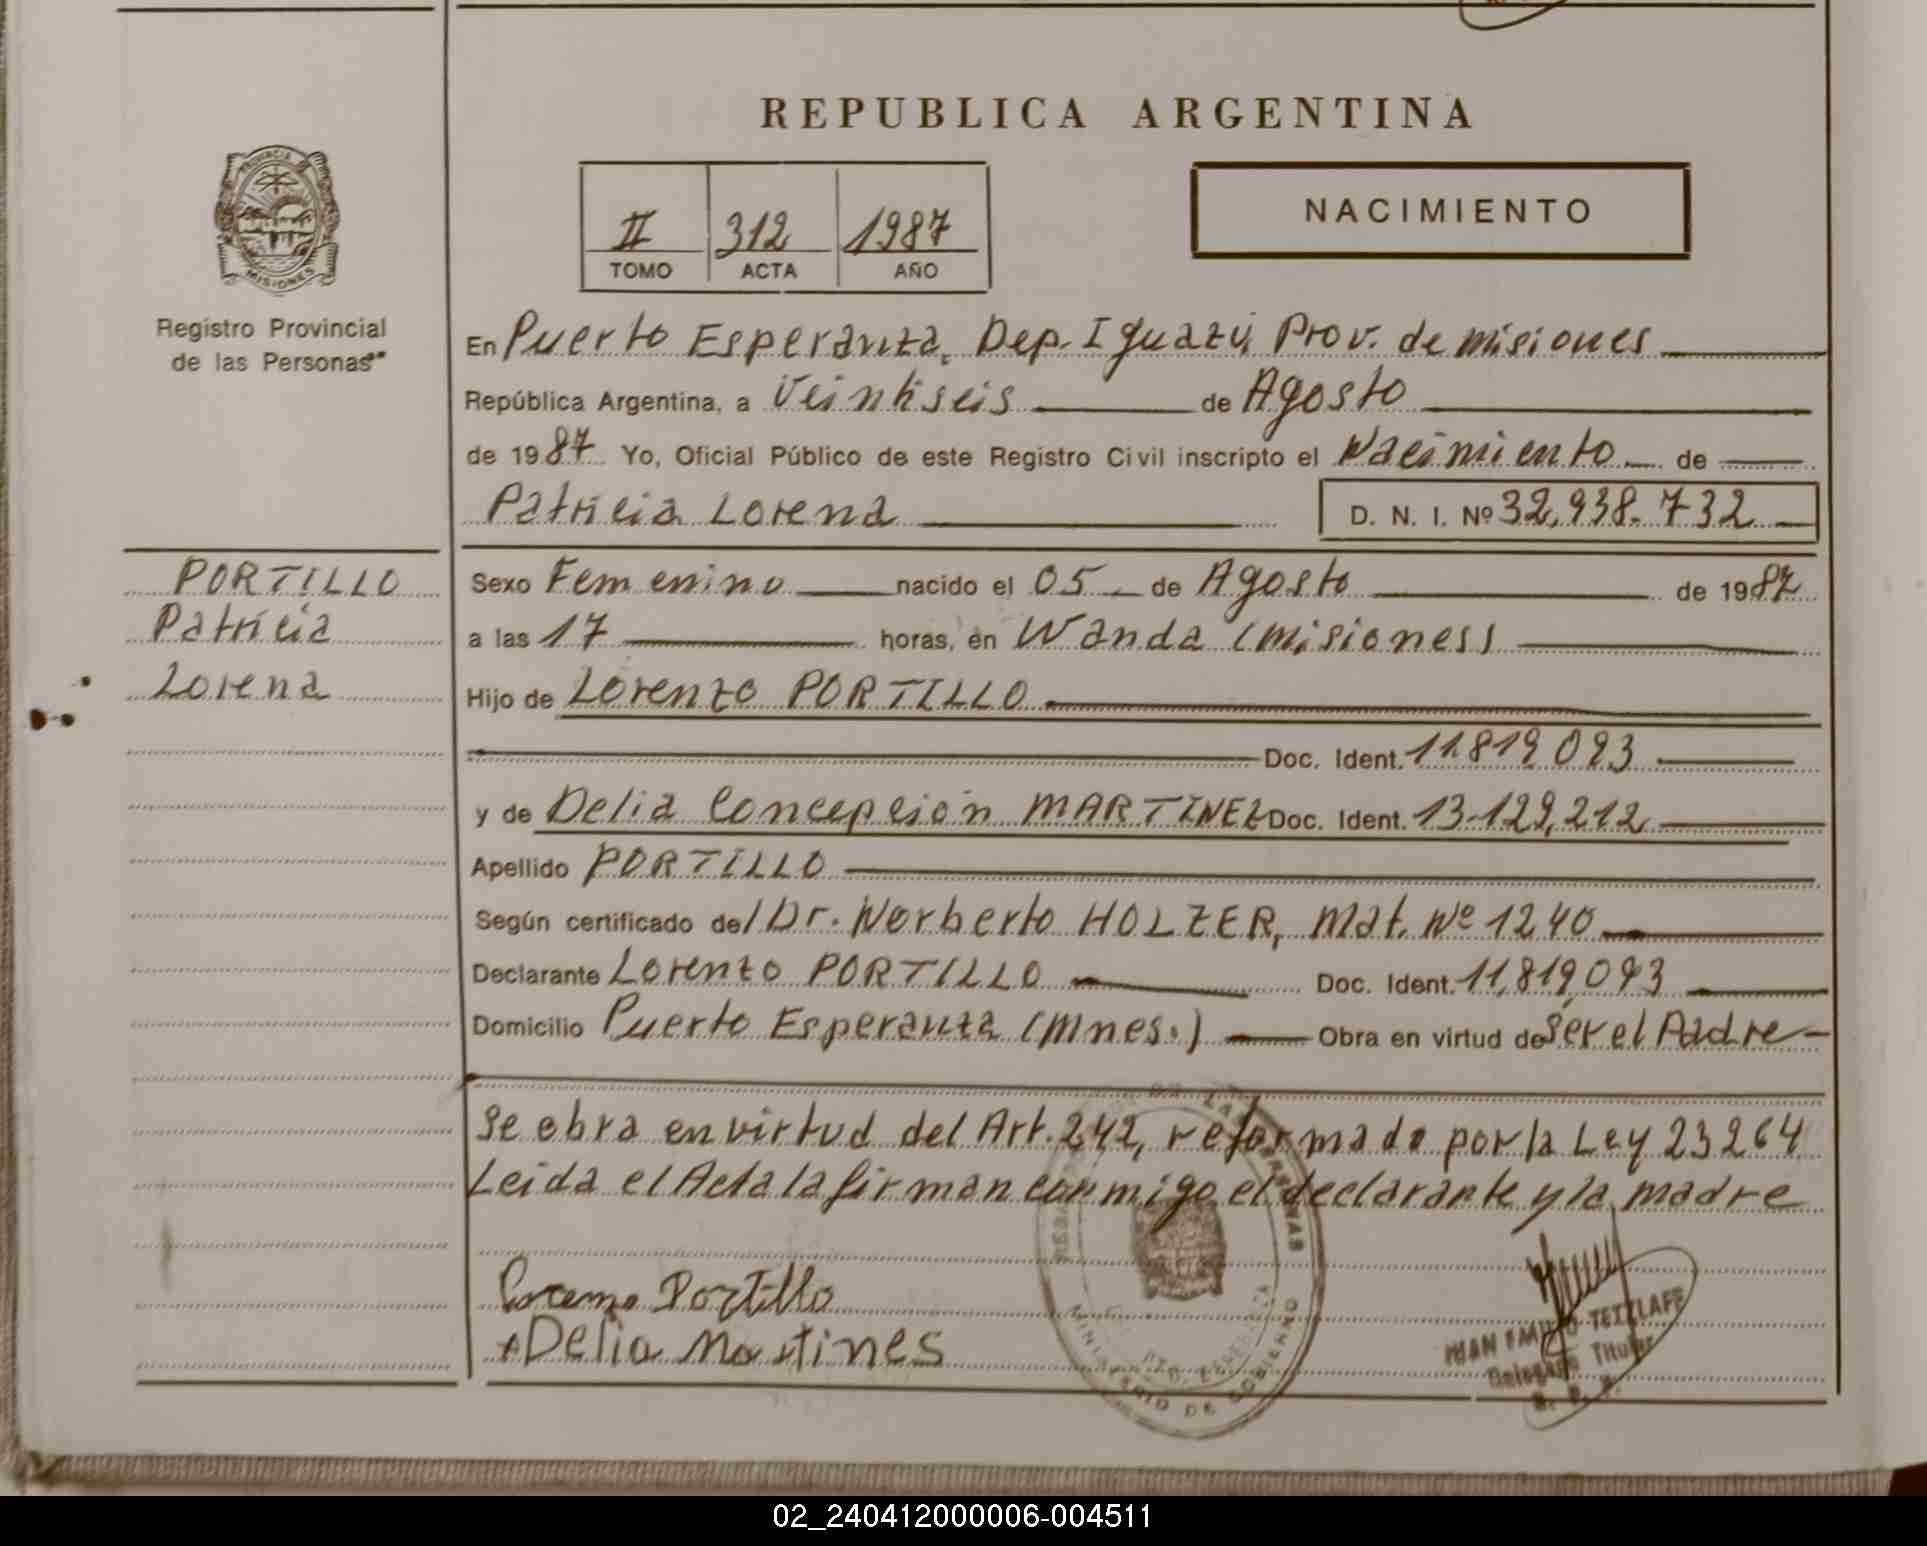 REPUBLICA ARGENTINA
PROVINCIA DE MISIONES
Registro Provincial
de las Personas
II 312 1987
TOMO ACTA AÑO
NACIMIENTO
En Puerto Esperanza, Dep. Iguazú, Prov. de misiones
República Argentina, a Veintiseis de Agosto
de 1987 Yo, Oficial Público de este Registro Civil inscripto el Nacimiento de
Patricia Lorena D. N. I. Nº 32,938.732
PORTILLO
Patricia
Lorena
Sexo Femenino nacido el 05 de Agosto de 1987
a las 17 horas, en Wanda (misiones)
Hijo de Lorenzo PORTILLO
Doc. Ident. 11.819.093
y de Delia Concepción MARTINEZ Doc. Ident. 13.129,212
Apellido PORTILLO
Según certificado del Dr. Norberto HOLZER, Mat. Nº 1240
Declarante Lorenzo PORTILLO Doc. Ident. 11,819,093
Domicilio Puerto Esperanza (Mnes.) Obra en virtud de Ser el Padre
Se obra en virtud del Art. 242, reformado por la Ley 23264
Leida el Acta la firman conmigo el declarante y la madre
Portillo
Delia Martines
JUAN EMILIO TETZLAFF
Delegado Titular
MINISTERIO DE GOBIERNO
02_240412000006-004511